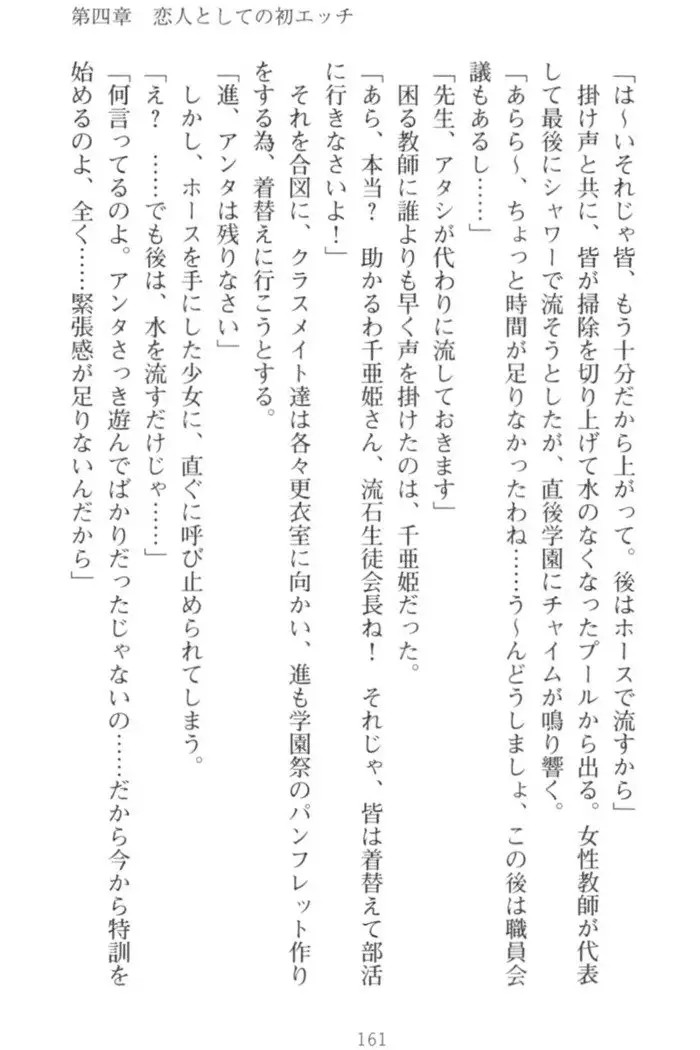 第四章　恋人としての初エッチ
「は～いそれじゃ皆、もう十分だから上がって。後はホースで流すから」
　掛け声と共に、皆が掃除を切り上げて水のなくなったプールから出る。女性教師が代表
して最後にシャワーで流そうとしたが、直後学園にチャイムが鳴り響く。
「あらら～、ちょっと時間が足りなかったわね……う～んどうしましょ、この後は職員会
議もあるし……」
「先生、アタシが代わりに流しておきます」
　困る教師に誰よりも早く声を掛けたのは、千亜姫だった。
「あら、本当？　助かるわ千亜姫さん、流石生徒会長ね！　それじゃ、皆は着替えて部活
に行きなさいよ！」
　それを合図に、クラスメイト達は各々更衣室に向かい、進も学園祭のパンフレット作り
をする為、着替えに行こうとする。
「進、アンタは残りなさい」
　しかし、ホースを手にした少女に、直ぐに呼び止められてしまう。
「え？　……でも後は、水を流すだけじゃ……」
「何言ってるのよ。アンタさっき遊んでばかりだったじゃないの……だから今から特訓を
始めるのよ、全く……緊張感が足りないんだから」
161